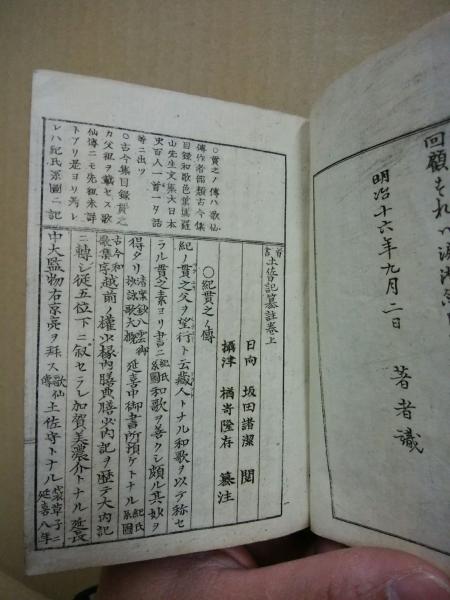 回顧すれハ
明治十六年九月二日
著者識
首書土佐日記纂註卷上
日向 坂田諸潔 閲
攝津 楢嵜隆存 纂注
○紀貫之ノ傳
紀ノ貫之父ヲ望行ト云藏人トナル和歌ヲ以テ稱セ
ラル貫之素ヨリ書ニ紀氏系圖和歌ヲ善クシ頗ル其妙ヲ
得タリ清案鈔八雲御抄詠歌大概延喜中御書所預ケトナル紀氏系圖
古今和歌集序越前ノ權少掾内膳典膳少内記ヲ歴テ大内記
ニ轉シ從五位下ニ叙セラレ加賀美濃介トナル延長
中大監物右京亮ヲ拜ス歌仙傳土佐守トナル袋草子ニ延喜八年
○貫之ノ傳ハ歌仙
傳作者部類古今集
目録和歌色葉羅
山先生文集大日本
史百人一首一夕話
等ニ出ツ
○古今集目録貫之
カ父祖ヲ載セス歌
仙傳ニモ先祖未詳
トアリ是ヨリ
レハ紀氏系圖ニ記